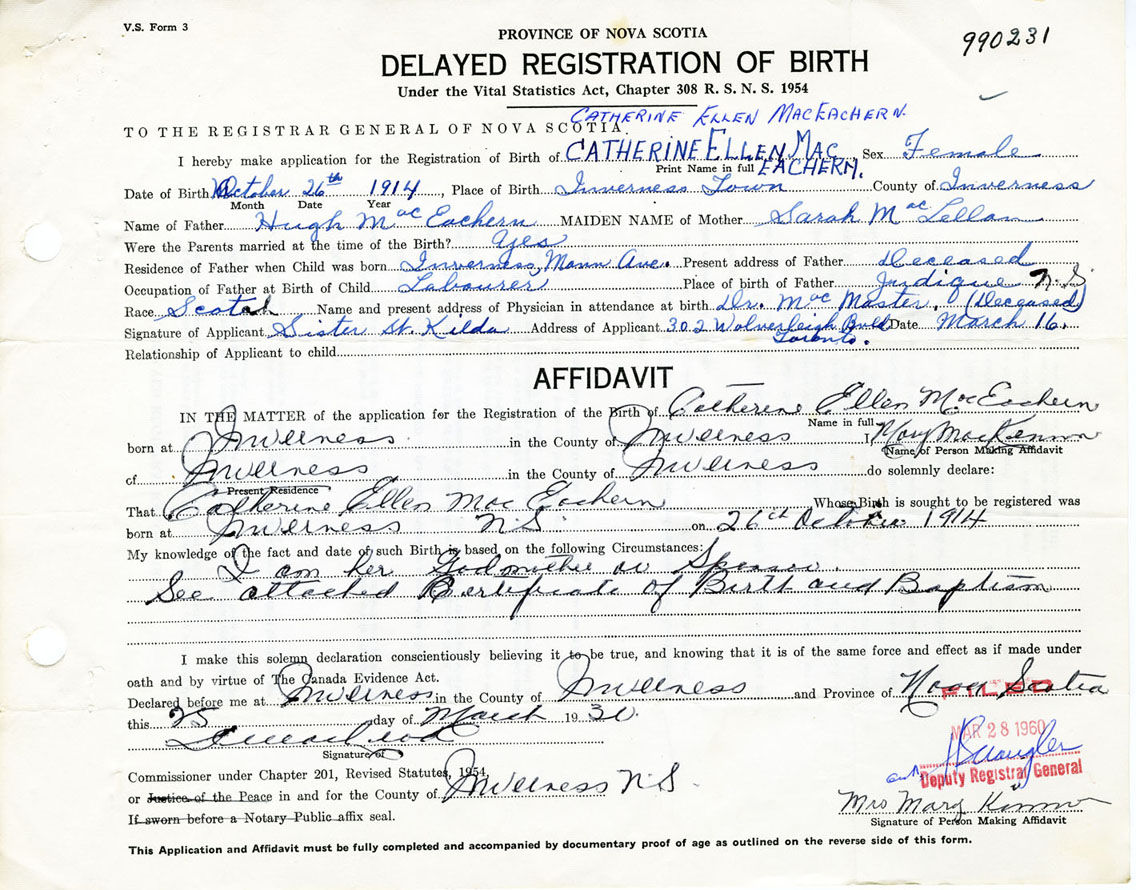 V.S. Form 3
990231
PROVINCE OF NOVA SCOTIA
DELAYED REGISTRATION OF BIRTH
Under the Vital Statistics Act, Chapter 308 R. S. N. S. 1954
CATHERINE ELLEN MACEACHERN.
TO THE REGISTRAR GENERAL OF NOVA SCOTIA.
I hereby make application for the Registration of Birth of CATHERINE ELLEN MAC EACHERN. Sex Female
Print Name in full
Date of Birth October 26th 1914, Place of Birth Inverness Town County of Inverness
Month Date Year
Name of Father Hugh MacEachern MAIDEN NAME of Mother Sarah MacLellan
Were the Parents married at the time of the Birth? Yes
Residence of Father when Child was born Inverness, Mann Ave. Present address of Father Deceased
Occupation of Father at Birth of Child Labourer Place of birth of Father Judique N.S.
Race Scotch Name and present address of Physician in attendance at birth Dr. MacMaster. (Deceased)
Signature of Applicant Sister St. Kilda Address of Applicant 302 Wolverleigh Bvld Toronto. Date March 16.
Relationship of Applicant to child
AFFIDAVIT
IN THE MATTER of the application for the Registration of the Birth of Catherine Ellen MacEachern
Name in full
born at Inverness in the County of Inverness I Mary MacKinnon
Name of Person Making Affidavit
of Inverness in the County of Inverness do solemnly declare:
Present Residence
That Catherine Ellen MacEachern Whose Birth is sought to be registered was
born at Inverness N.S. on 26th October 1914
My knowledge of the fact and date of such Birth is based on the following Circumstances:
I am her Godmother or Sponsor.
See attached Certificate of Birth and Baptism
I make this solemn declaration conscientiously believing it to be true, and knowing that it is of the same force and effect as if made under
oath and by virtue of The Canada Evidence Act.
Declared before me at Inverness in the County of Inverness and Province of Nova Scotia
FILED
this 25 day of March 19
MAR 28 1960
Signature of
Deputy Registrar General
Commissioner under Chapter 201, Revised Statutes, 1954,
or Justice of the Peace in and for the County of Inverness N.S.
Mrs Mary Kinnon
If sworn before a Notary Public affix seal.
Signature of Person Making Affidavit
This Application and Affidavit must be fully completed and accompanied by documentary proof of age as outlined on the reverse side of this form.